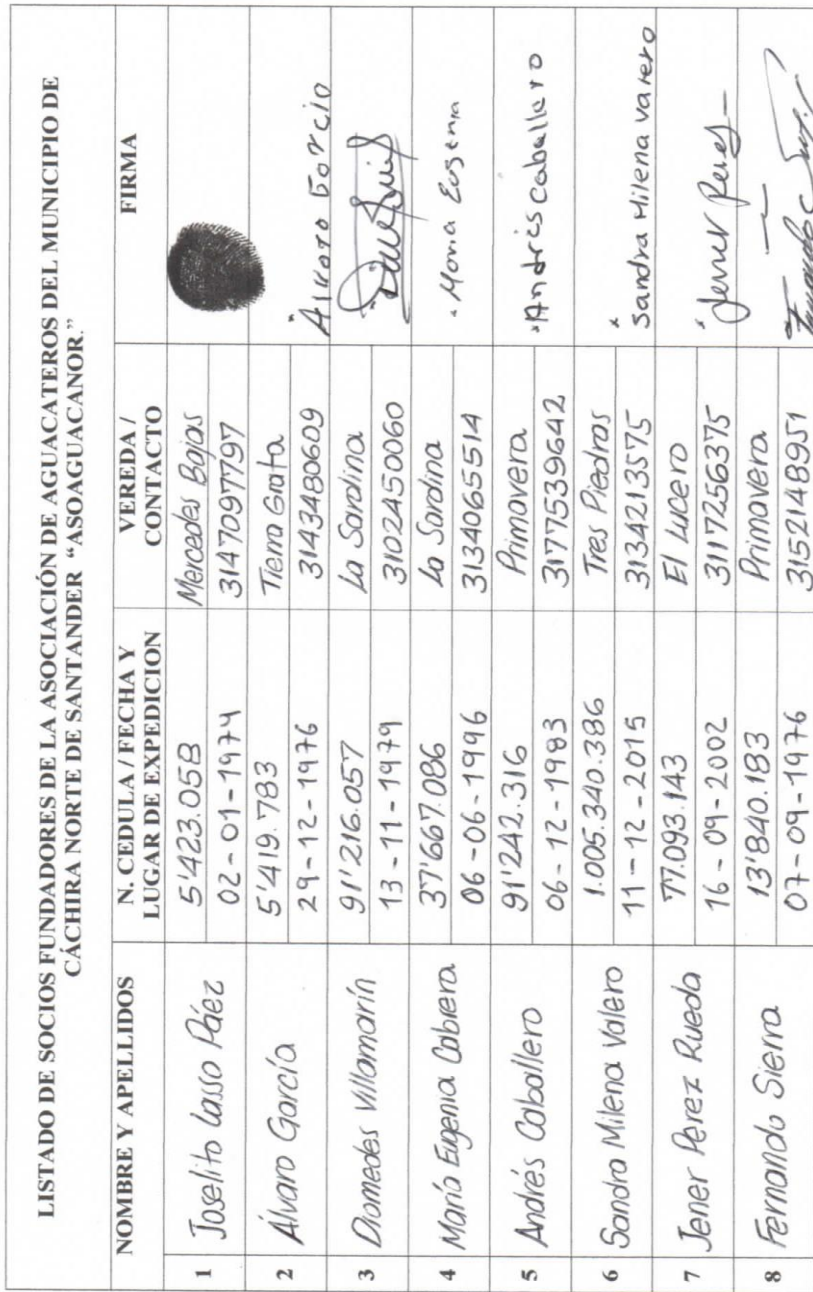 LISTADO DE SOCIOS FUNDADORES DE LA ASOCIACIÓN DE AGUACATEROS DEL MUNICIPIO DE
CÁCHIRA NORTE DE SANTANDER “ASOAGUACANOR.”
NOMBRE Y APELLIDOS
N. CEDULA / FECHA Y
LUGAR DE EXPEDICION
VEREDA /
CONTACTO
FIRMA
1
Joselito Lasso Páez
5'423.058
02-01-1974
Mercedes Bajas
3147097797
2
Álvaro García
5'419.783
29-12-1976
Tierra Grata
3143480609
Alvaro Garcia
3
Diomedes Villamarín
91'216.057
13-11-1979
La Sardina
3102450060
4
María Eugenia Cabrera
37'667.086
06-06-1996
La Sardina
3134065514
Maria Eugenia
5
Andrés Caballero
91'242.316
06-12-1983
Primavera
3177539642
Andrés Caballero
6
Sandra Milena Valero
1.005.340.386
11-12-2015
Tres Piedras
3134213575
Sandra Milena Valero
7
Jener Perez Rueda
77.093.143
16-09-2002
El Lucero
3117256375
Jener Perez
8
Fernando Sierra
13'840.183
07-09-1976
Primavera
3152148951